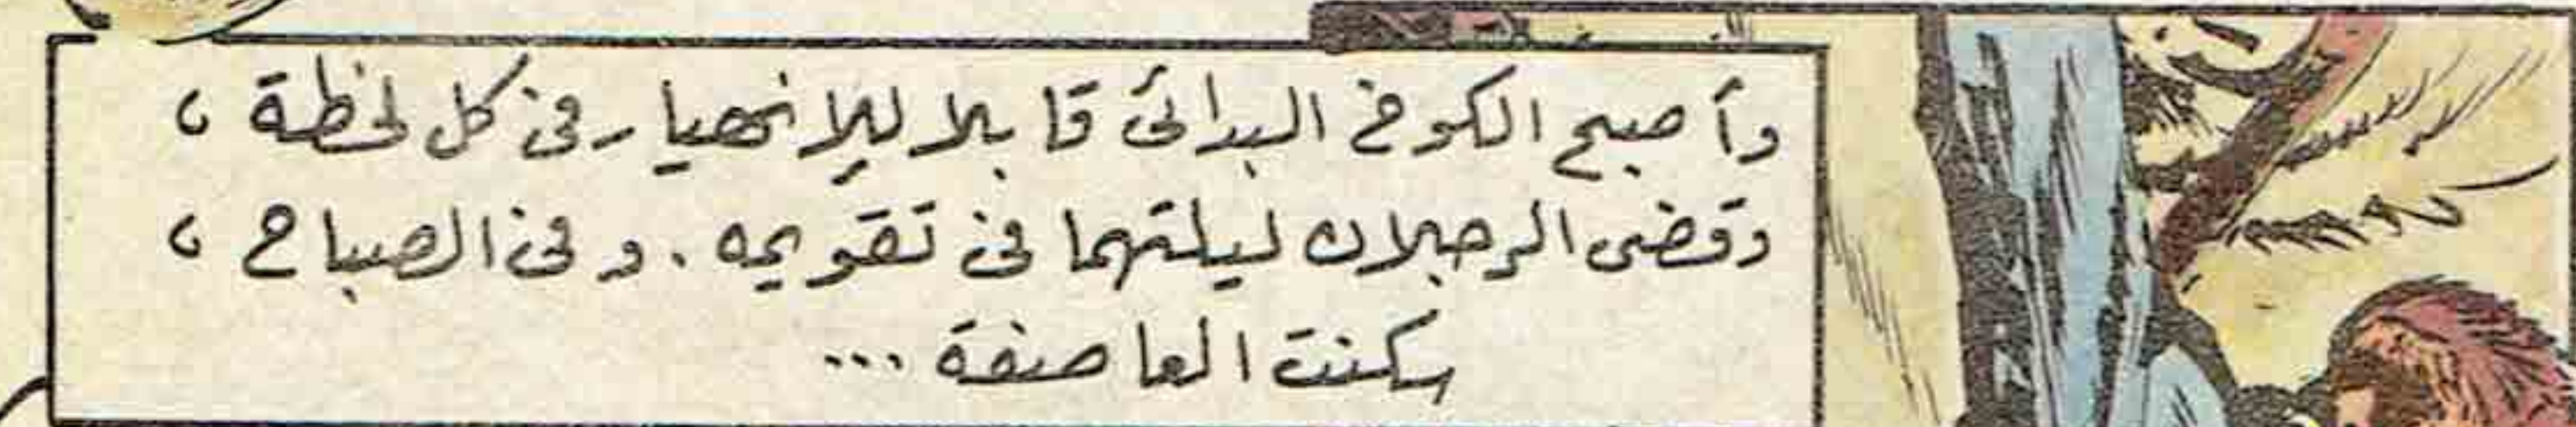 وأصبح الكوخ البدائى قابلا للإنهيار فى كل لحظة ،
وقضى الرجلان ليلتهما فى تقويمه . وفى الصباح ،
سكنت العاصفة ...